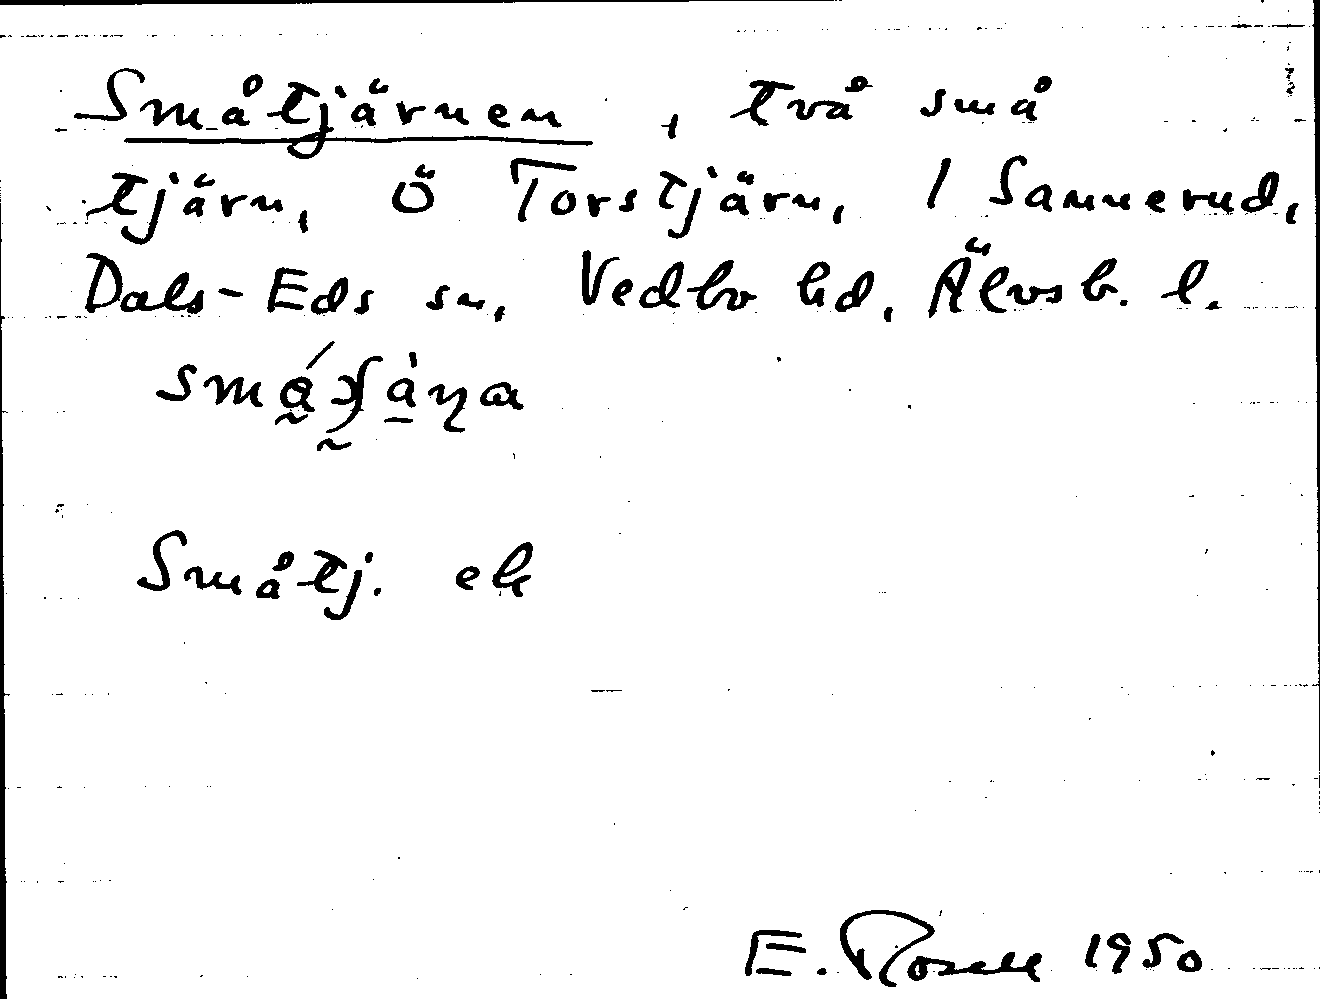 Småtjärnen, två små
tjärn, Ö Torstjärn, 1 Sannerud,
Dals-Eds sn, Vedbo hd, Älvsb. l.
Småtj. ek
E. Rosell 1950